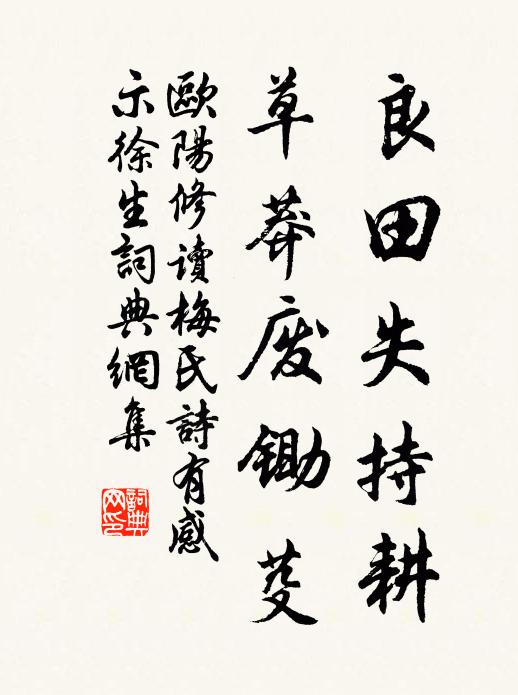 良田失持耕
草莽废锄芟
歐陽修讀梅氏詩有感
示徐生詞典網集
詞典
网印